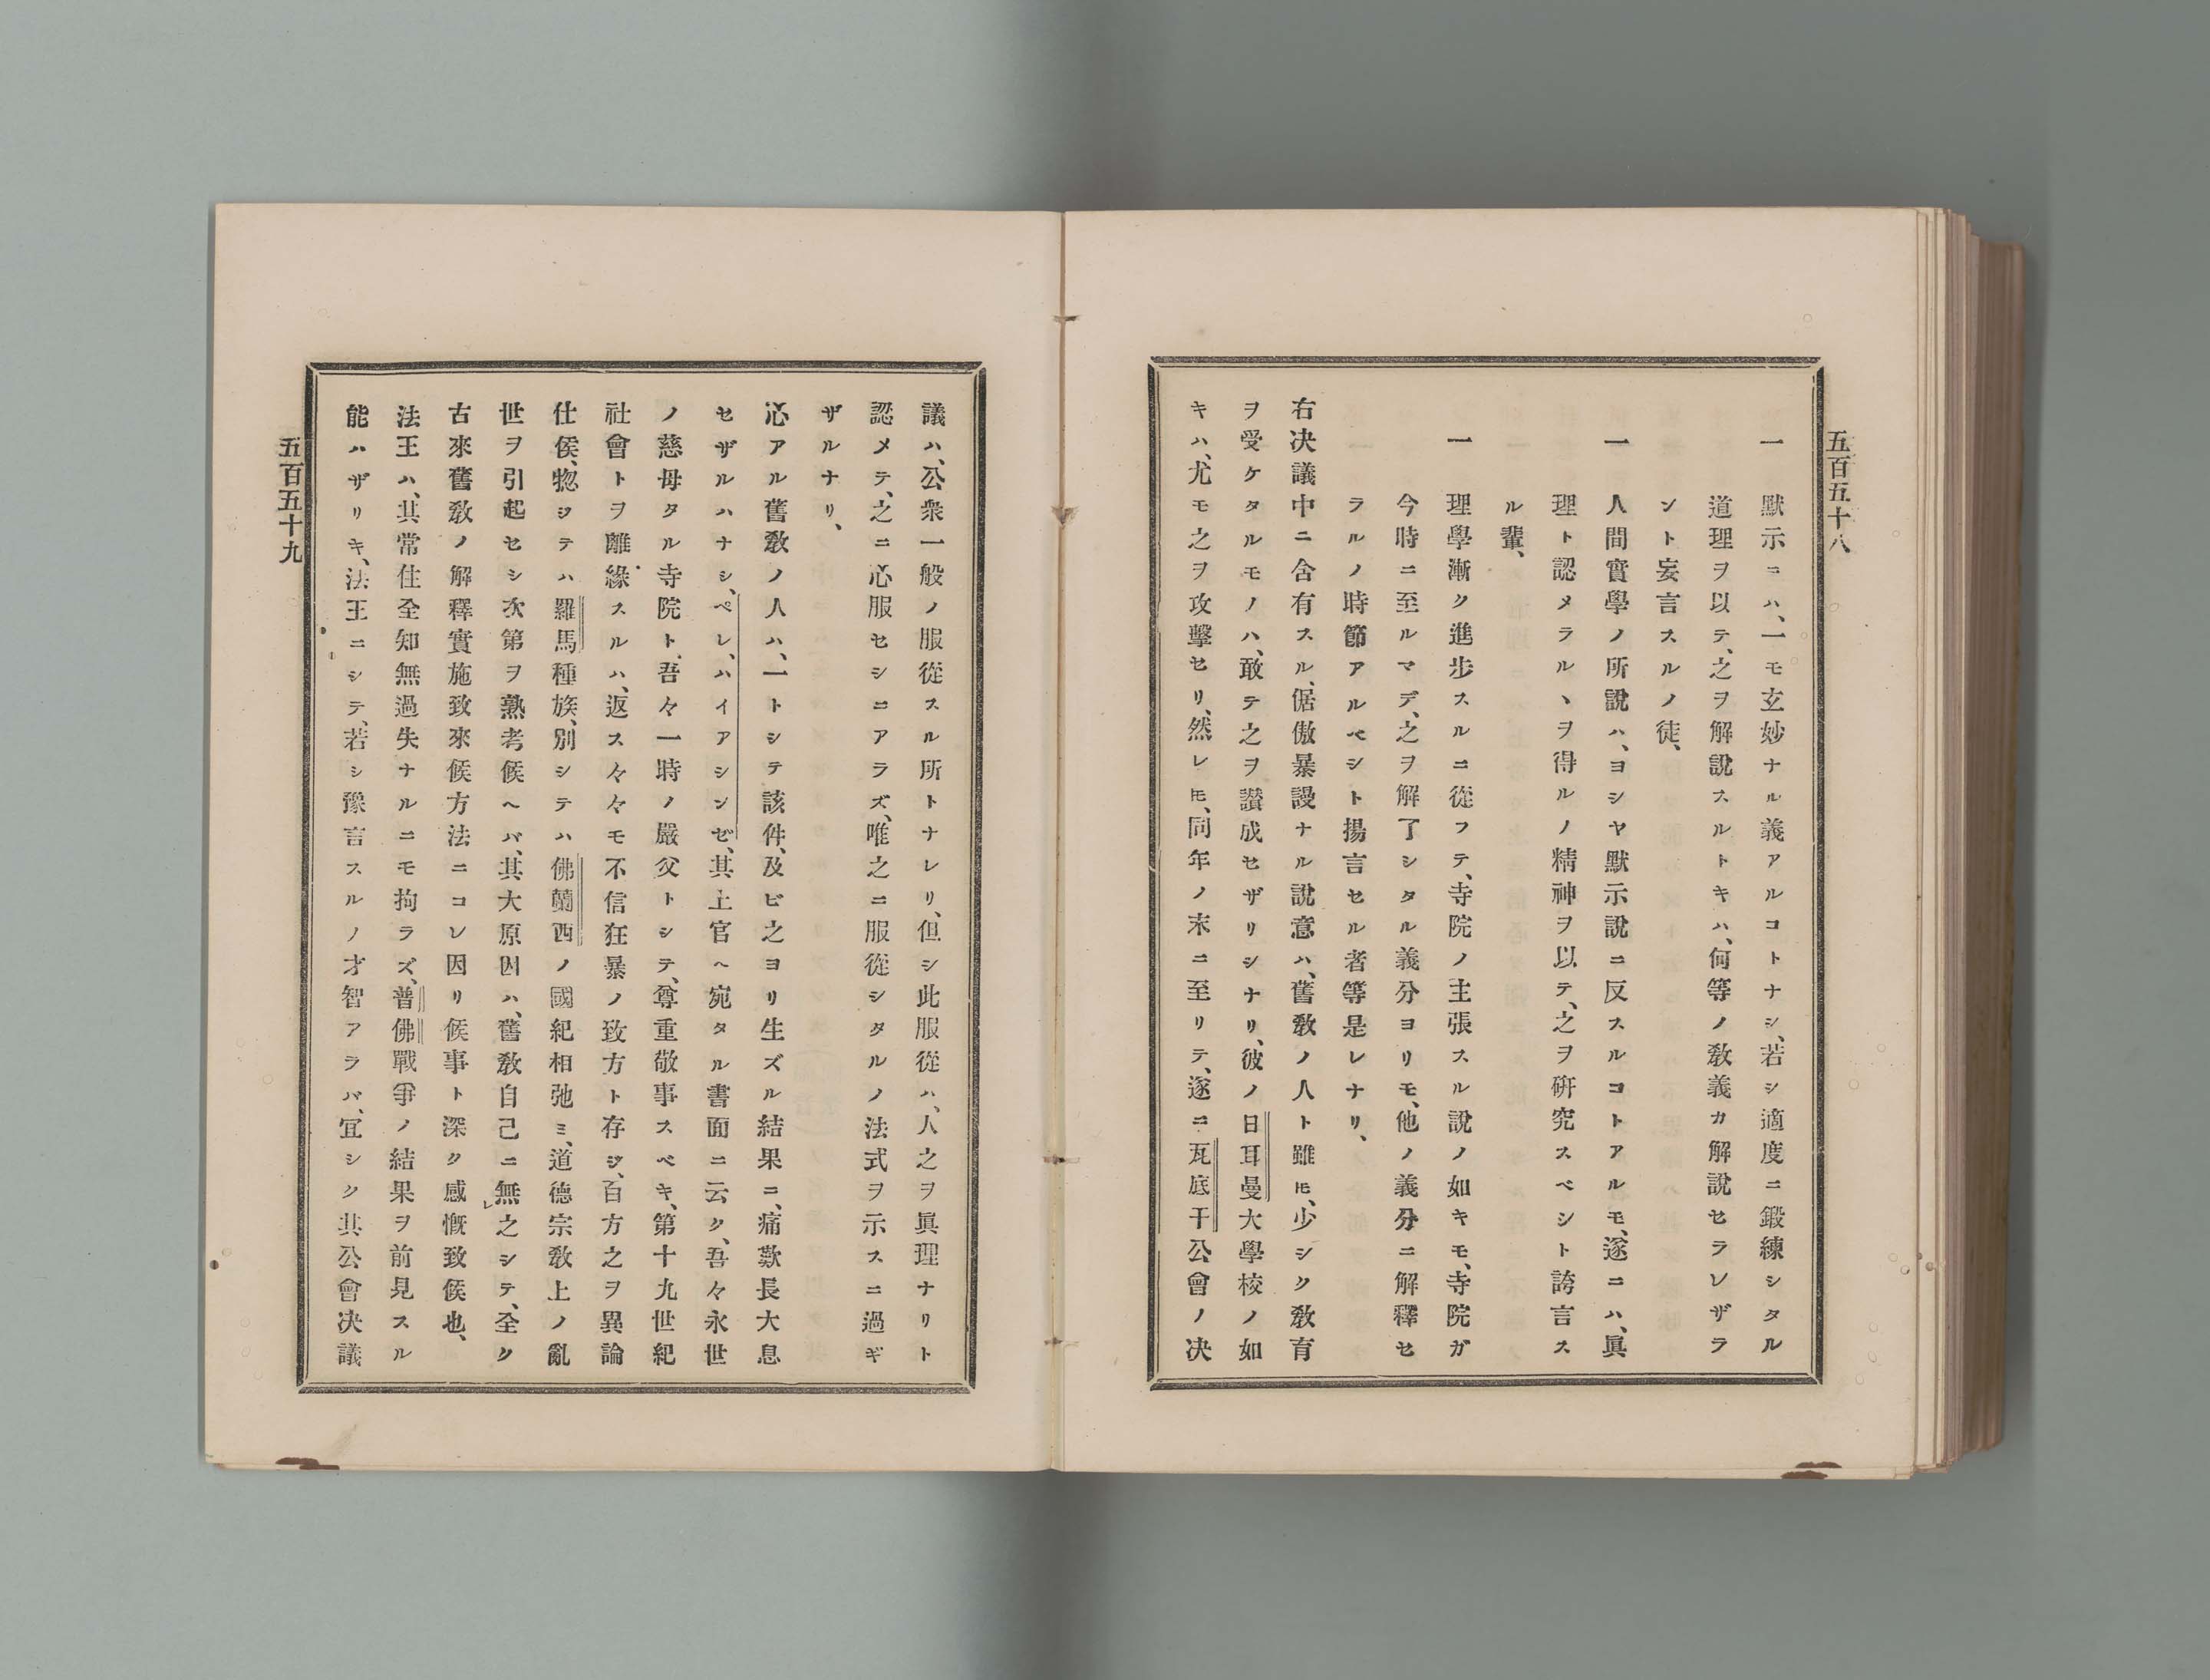 五百五十八
一 默示ニハ、一モ玄妙ナル義アルコトナシ、若シ適度ニ鍛練シタル
道理ヲ以テ、之ヲ解說スルトキハ、何等ノ敎義カ解說セラレザラ
ント妄言スルノ徒、
一 人間實學ノ所說ハ、ヨシヤ默示說ニ反スルコトアルモ、遂ニハ、眞
理ト認メラルヽヲ得ルノ精神ヲ以テ、之ヲ硏究スベシト誇言ス
ル輩、
一 理學漸ク進步スルニ從フテ、寺院ノ主張スル說ノ如キモ、寺院ガ
今時ニ至ルマデ、之ヲ解了シタル義分ヨリモ、他ノ義分ニ解釋セ
ラルノ時節アルベシト揚言セル者等是レナリ、
右决議中ニ含有スル、倨傲暴謾ナル說意ハ、舊敎ノ人ト雖𪜈、少シク敎育
ヲ受ケタルモノハ、敢テ之ヲ讃成セザリシナリ、彼ノ日耳曼大學校ノ如
キハ、尤モ之ヲ攻擊セリ、然レ𪜈、同年ノ末ニ至リテ、遂ニ瓦底干公會ノ决
議ハ、公衆一般ノ服從スル所トナレリ、但シ此服從ハ、人之ヲ眞理ナリト
認メテ、之ニ心服セシニアラズ、唯之ニ服從シタルノ法式ヲ示スニ過ギ
ザルナリ、
心アル舊敎ノ人ハ、一トシテ該件、及ビ之ヨリ生ズル結果ニ、痛歎長大息
セザルハナシ、ペレ、ハイアシンゼ、其上官ヘ宛タル書面ニ云ク、吾々永世
ノ慈母タル寺院ト、吾々一時ノ嚴父トシテ、尊重敬事スベキ、第十九世紀
社會トヲ離緣スルハ、返ス々々モ不信狂暴ノ致方ト存ジ、百方之ヲ異論
仕侯、惣ジテハ羅馬種族、別シテハ佛蘭西ノ國紀相弛ミ、道德宗敎上ノ亂
世ヲ引起セシ次第ヲ熟考候ヘバ、其大原因ハ、舊敎自己ニ無之シテ、全ク
古來舊敎ノ解釋實施致來候方法ニコレ因リ候事ト深ク感慨致候也、
法王ハ、其常住全知無過失ナルニモ拘ラズ、普佛戰爭ノ結果ヲ前見スル
能ハザリキ、法王ニシテ、若シ豫言スルノ才智アラバ、宜シク其公會决議
五百五十九